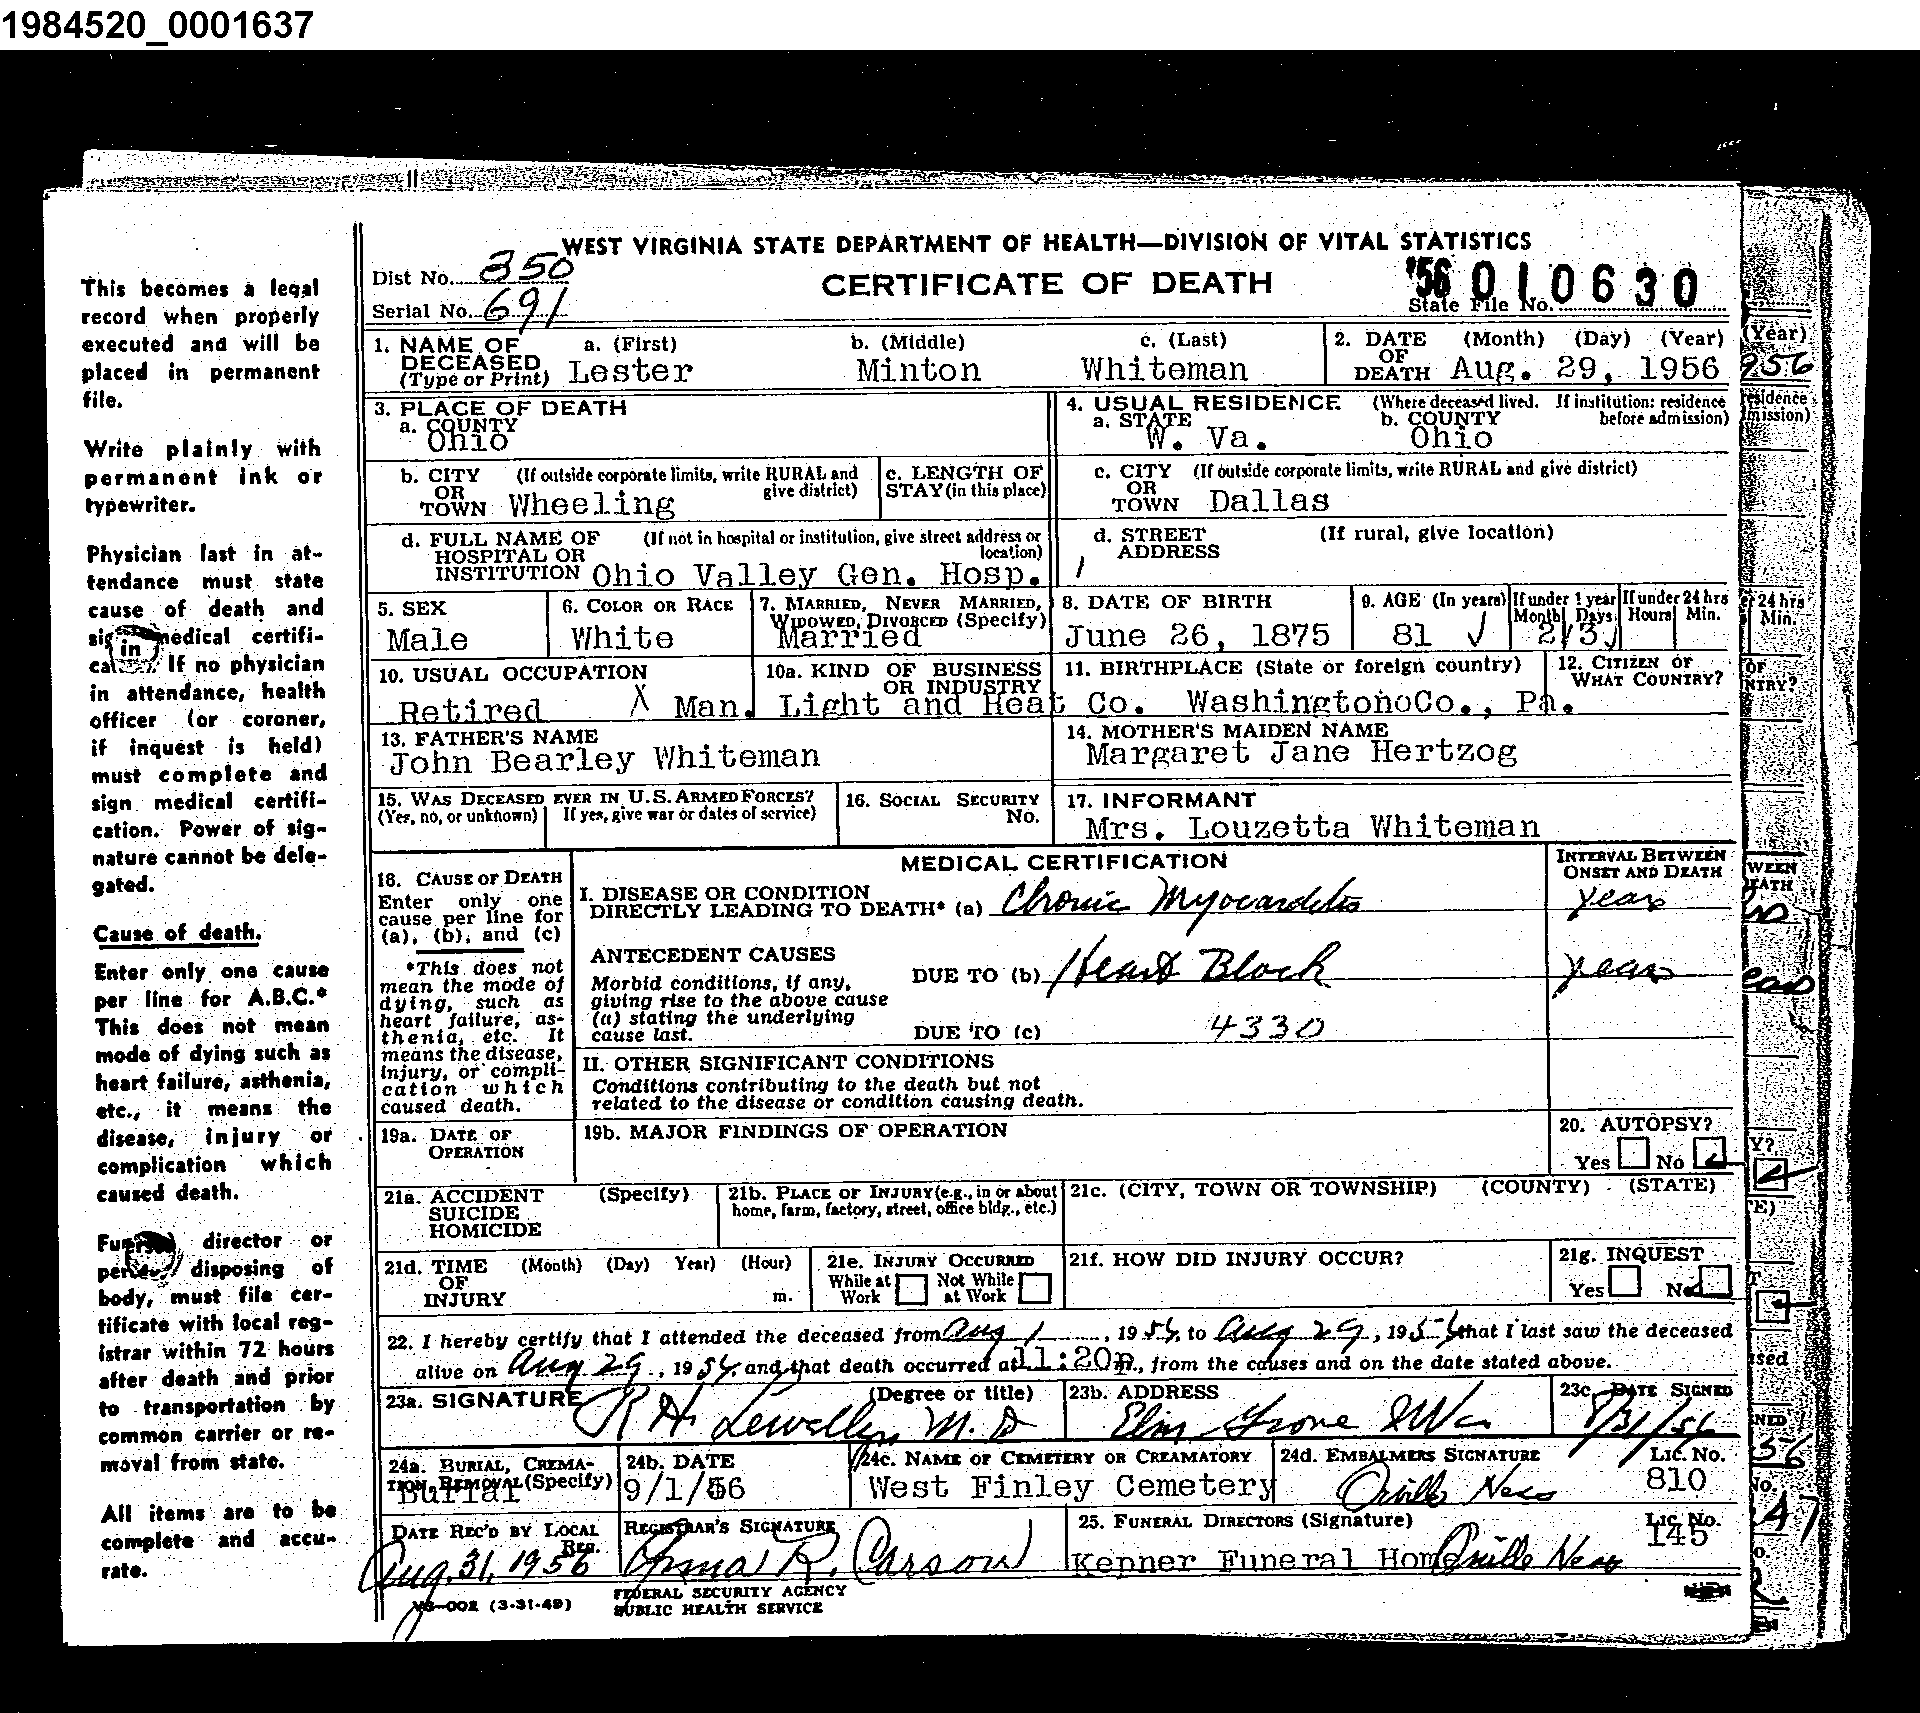 1984520_0001637
WEST VIRGINIA STATE DEPARTMENT OF HEALTH—DIVISION OF VITAL STATISTICS
Dist No. 350
CERTIFICATE OF DEATH
'56 010630
Serial No. 691
State File No.
1. NAME OF DECEASED (Type or Print) a. (First) Lester b. (Middle) Minton c. (Last) Whiteman
2. DATE OF DEATH (Month) (Day) (Year) Aug. 29, 1956
3. PLACE OF DEATH
a. COUNTY Ohio
4. USUAL RESIDENCE (Where deceased lived. If institution: residence before admission)
a. STATE W. Va. b. COUNTY Ohio
b. CITY OR TOWN (If outside corporate limits, write RURAL and give district) Wheeling
c. LENGTH OF STAY (in this place)
c. CITY OR TOWN (If outside corporate limits, write RURAL and give district) Dallas
d. FULL NAME OF HOSPITAL OR INSTITUTION (If not in hospital or institution, give street address or location) Ohio Valley Gen. Hosp.
d. STREET ADDRESS (If rural, give location)
5. SEX Male
6. COLOR OR RACE White
7. MARRIED, NEVER MARRIED, WIDOWED, DIVORCED (Specify) Married
8. DATE OF BIRTH June 26, 1875
9. AGE (In years) 81
If under 1 year Months Days 2 3
If under 24 hrs Hours Min.
10. USUAL OCCUPATION Retired
10a. KIND OF BUSINESS OR INDUSTRY Man. Light and Heat Co.
11. BIRTHPLACE (State or foreign country) WashingtonoCo., Pa.
12. CITIZEN OF WHAT COUNTRY?
13. FATHER'S NAME
John Bearley Whiteman
14. MOTHER'S MAIDEN NAME
Margaret Jane Hertzog
15. WAS DECEASED EVER IN U.S. ARMED FORCES?
(Yes, no, or unknown) If yes, give war or dates of service)
16. SOCIAL SECURITY No.
17. INFORMANT
Mrs. Louzetta Whiteman
MEDICAL CERTIFICATION
INTERVAL BETWEEN ONSET AND DEATH
18. CAUSE OF DEATH
Enter only one cause per line for (a), (b), and (c)
*This does not mean the mode of dying, such as heart failure, asthenia, etc. It means the disease, injury, or complication which caused death.
I. DISEASE OR CONDITION DIRECTLY LEADING TO DEATH* (a) Chronic Myocarditis years
ANTECEDENT CAUSES
Morbid conditions, if any, giving rise to the above cause (a) stating the underlying cause last.
DUE TO (b) Heart Block years
DUE TO (c) 4330
II. OTHER SIGNIFICANT CONDITIONS
Conditions contributing to the death but not related to the disease or condition causing death.
19a. DATE OF OPERATION
19b. MAJOR FINDINGS OF OPERATION
20. AUTOPSY?
Yes No
21a. ACCIDENT SUICIDE HOMICIDE (Specify)
21b. PLACE OF INJURY (e.g., in or about home, farm, factory, street, office bldg., etc.)
21c. (CITY, TOWN OR TOWNSHIP) (COUNTY) (STATE)
21d. TIME OF INJURY (Month) (Day) Year) (Hour) m.
21e. INJURY OCCURRED
While at Work Not While at Work
21f. HOW DID INJURY OCCUR?
21g. INQUEST
Yes No
22. I hereby certify that I attended the deceased from Aug 1, 1956, to Aug 29, 1956 that I last saw the deceased
alive on Aug 29, 1956, and that death occurred at 11:20p m., from the causes and on the date stated above.
23a. SIGNATURE (Degree or title) R H. Lewellen M.D
23b. ADDRESS Elm Grove W Va
23c. DATE SIGNED 8/31/56
24a. BURIAL, CREMATION, REMOVAL (Specify) Burial
24b. DATE 9/1/56
24c. NAME OF CEMETERY OR CREAMATORY West Finley Cemetery
24d. EMBALMERS SIGNATURE Orville Ness
LIC. NO. 810
DATE REC'D BY LOCAL REG. Aug. 31, 1956
REGISTRAR'S SIGNATURE Anna R. Carson
25. FUNERAL DIRECTORS (Signature) Kepner Funeral Home Orville Ness
LIC. NO. 145
VS-002 (3-31-49)
FEDERAL SECURITY AGENCY
PUBLIC HEALTH SERVICE
This becomes a legal
record when properly
executed and will be
placed in permanent
file.
Write plainly with
permanent ink or
typewriter.
Physician last in at-
tendance must state
cause of death and
sign medical certifi-
cation. If no physician
in attendance, health
officer (or coroner,
if inquest is held)
must complete and
sign medical certifi-
cation. Power of sig-
nature cannot be dele-
gated.
Cause of death.
Enter only one cause
per line for A.B.C.*
This does not mean
mode of dying such as
heart failure, asthenia,
etc., it means the
disease, injury or
complication which
caused death.
Funeral director or
person disposing of
body, must file cer-
tificate with local reg-
istrar within 72 hours
after death and prior
to transportation by
common carrier or re-
moval from state.
All items are to be
complete and accu-
rate.